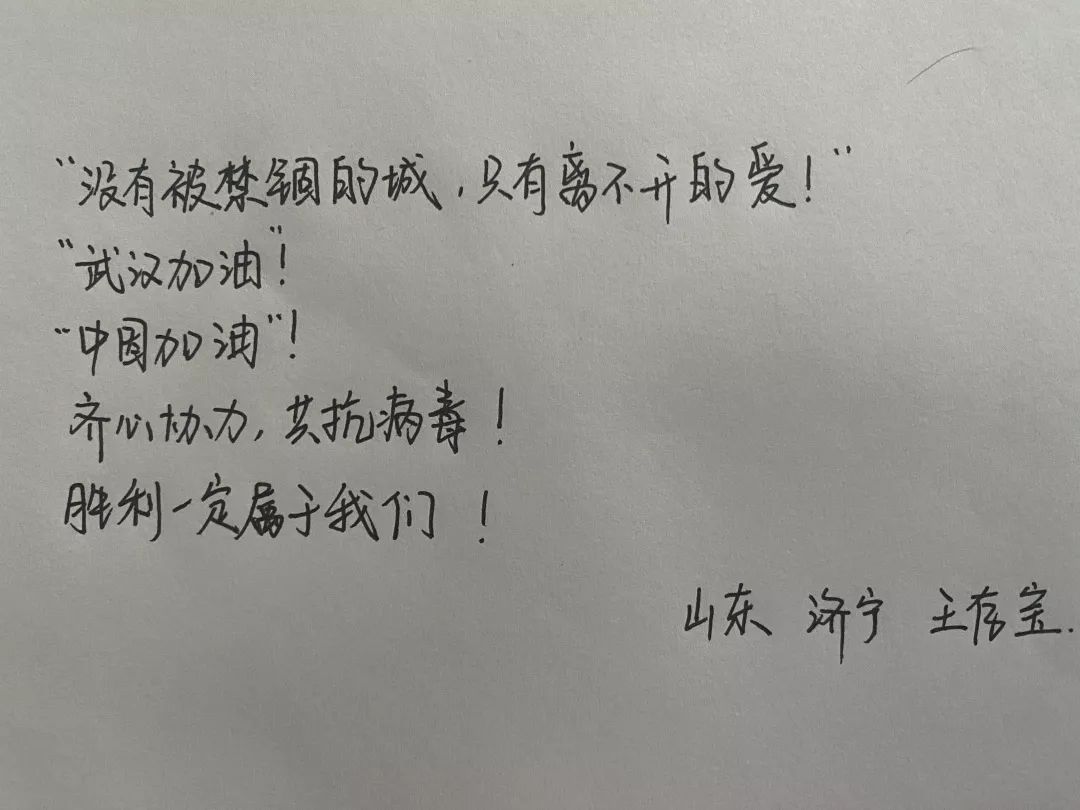 “没有被禁锢的城，只有离不开的爱！”
“武汉加油”！
“中国加油”！
齐心协力，共抗病毒！
胜利一定属于我们！
山东 济宁 王存宝.